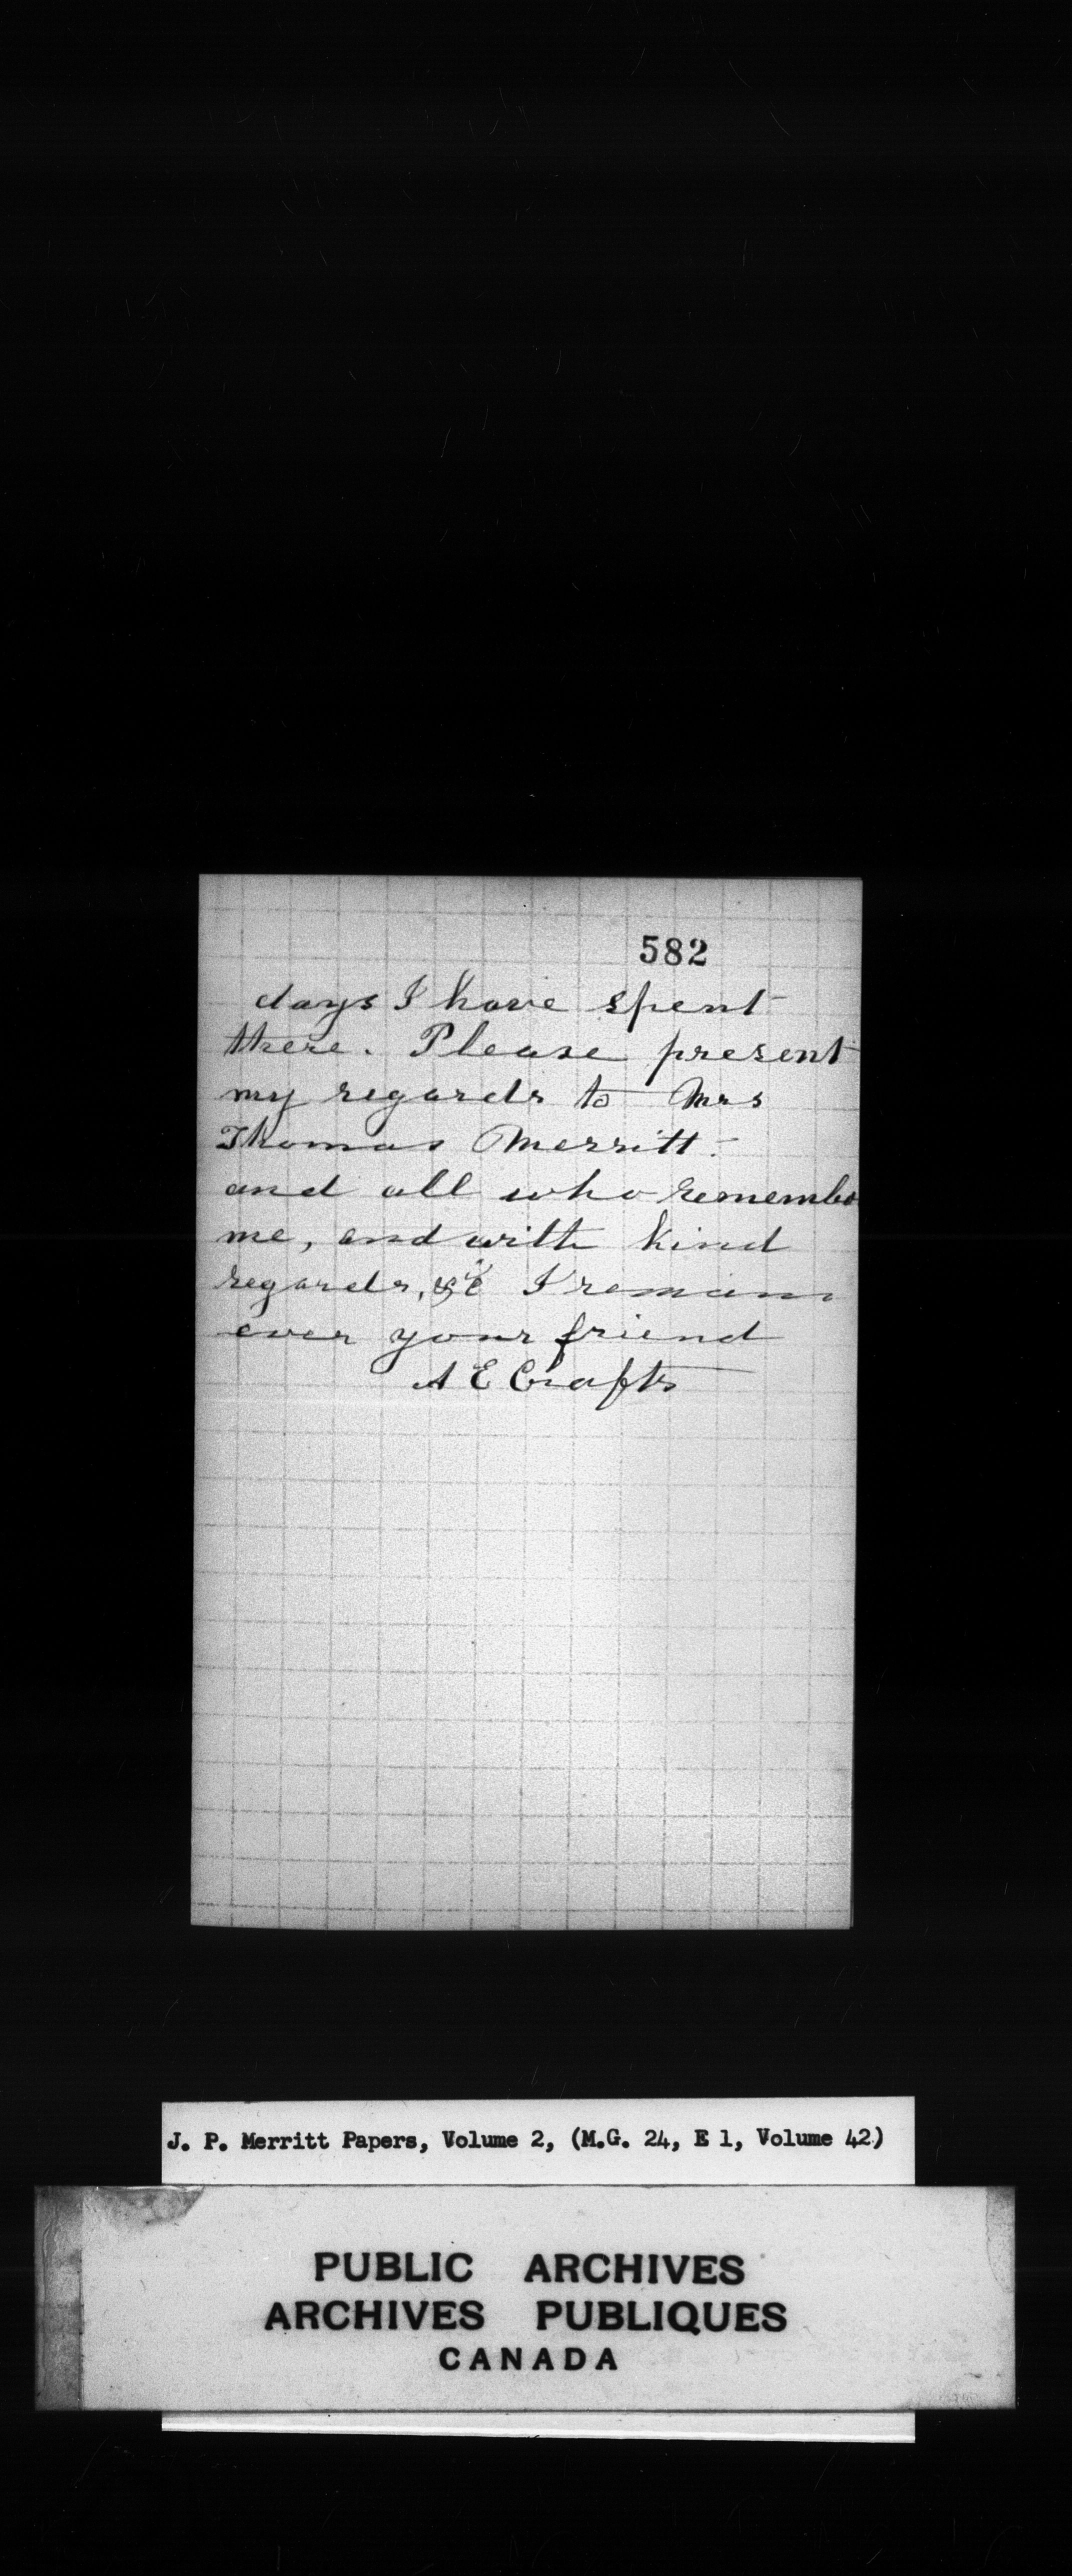 582
days I have spent
there. Please present
my regards to Mrs
Thomas Merritt.
and all who remember
me, and with kind
regards, &c I remain
ever your friend
A E Crafts
J. P. Merritt Papers, Volume 2, (M.G. 24, E 1, Volume 42)
PUBLIC ARCHIVES
ARCHIVES PUBLIQUES
CANADA